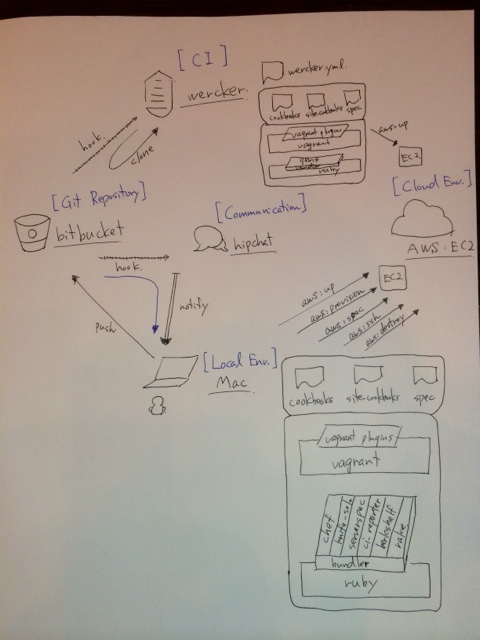 [CI]
wercker.
wercker.yml.
cookbooks
site-cookbooks
spec
vagrant plugins
vagrant
ruby
aws:up
EC2
hook.
clone
[Git Repository]
bitbucket
[Communication]
hipchat
[Cloud Env.]
AWS:EC2
hook.
notify
push
aws:up
aws:provision
aws:spec
aws:ssh
aws:destroy
EC2
[Local Env.]
Mac
cookbooks
site-cookbooks
spec
vagrant plugins
vagrant
chef
knife-solo
serverspec
ci_reporter
berkshelf
rake
bundler
ruby